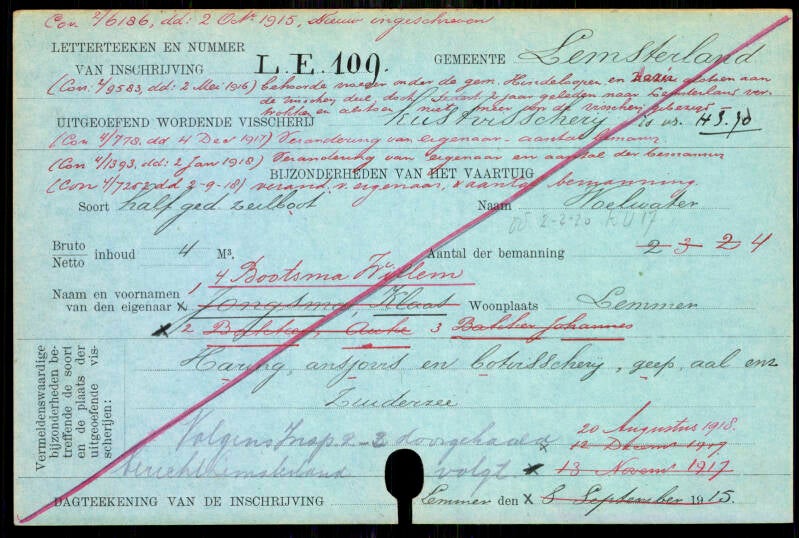 Con 4/6186, dd: 2 Oct 1915, Nieuw ingeschreven
LETTERTEEKEN EN NUMMER
VAN INSCHRIJVING L.E. 109. GEMEENTE Lemsterland
(Con: 4/9583, dd: 2 Mei 1916) behoorde vroeger onder de gem. Hindeloopen en
de visscherij deel, doch sedert 2 jaar geleden naar Lemsterland ver-
trokken en alstoen niet meer op de visscherij
UITGEOEFEND WORDENDE VISSCHERIJ Kustvisscherij is vs. H3.90
(Con 4/778. dd 4 Dec 1917) Verandering van eigenaar - aantal bemann.
(Con 4/1393, dd: 2 Jan 1918) Verandering van eigenaar en aantal der bemannin
(Con 4/7252 dd 2-9-18) verand. v. eigenaar, & aantal bemanning.
BIJZONDERHEDEN VAN HET VAARTUIG
Soort half ged zeilboot Naam Hoelwater
2-2-20 KU 17
Bruto
Netto inhoud 4 M³. Aantal der bemanning 2 3 2 4
1, 4 Bootsma Willem
Naam en voornamen
van den eigenaar x Jongsma, Klaas Woonplaats Lemmer
x 2 Bakker, Auke 3 Bakker Johannes
Vermeldenswaardige
bijzonderheden be-
treffende de soort
en de plaats der
uitgeoefende vis-
scherijen:
Haring, ansjovis en botvisscherij, geep, aal enz
Zuiderzee
Volgens Insp 2-2 doorgehaald
volgt
20 Augustus 1918.
x 12 Decemr 1917
x 13 Novemr 1917
DAGTEEKENING VAN DE INSCHRIJVING Lemmer den x 8 September 1915.